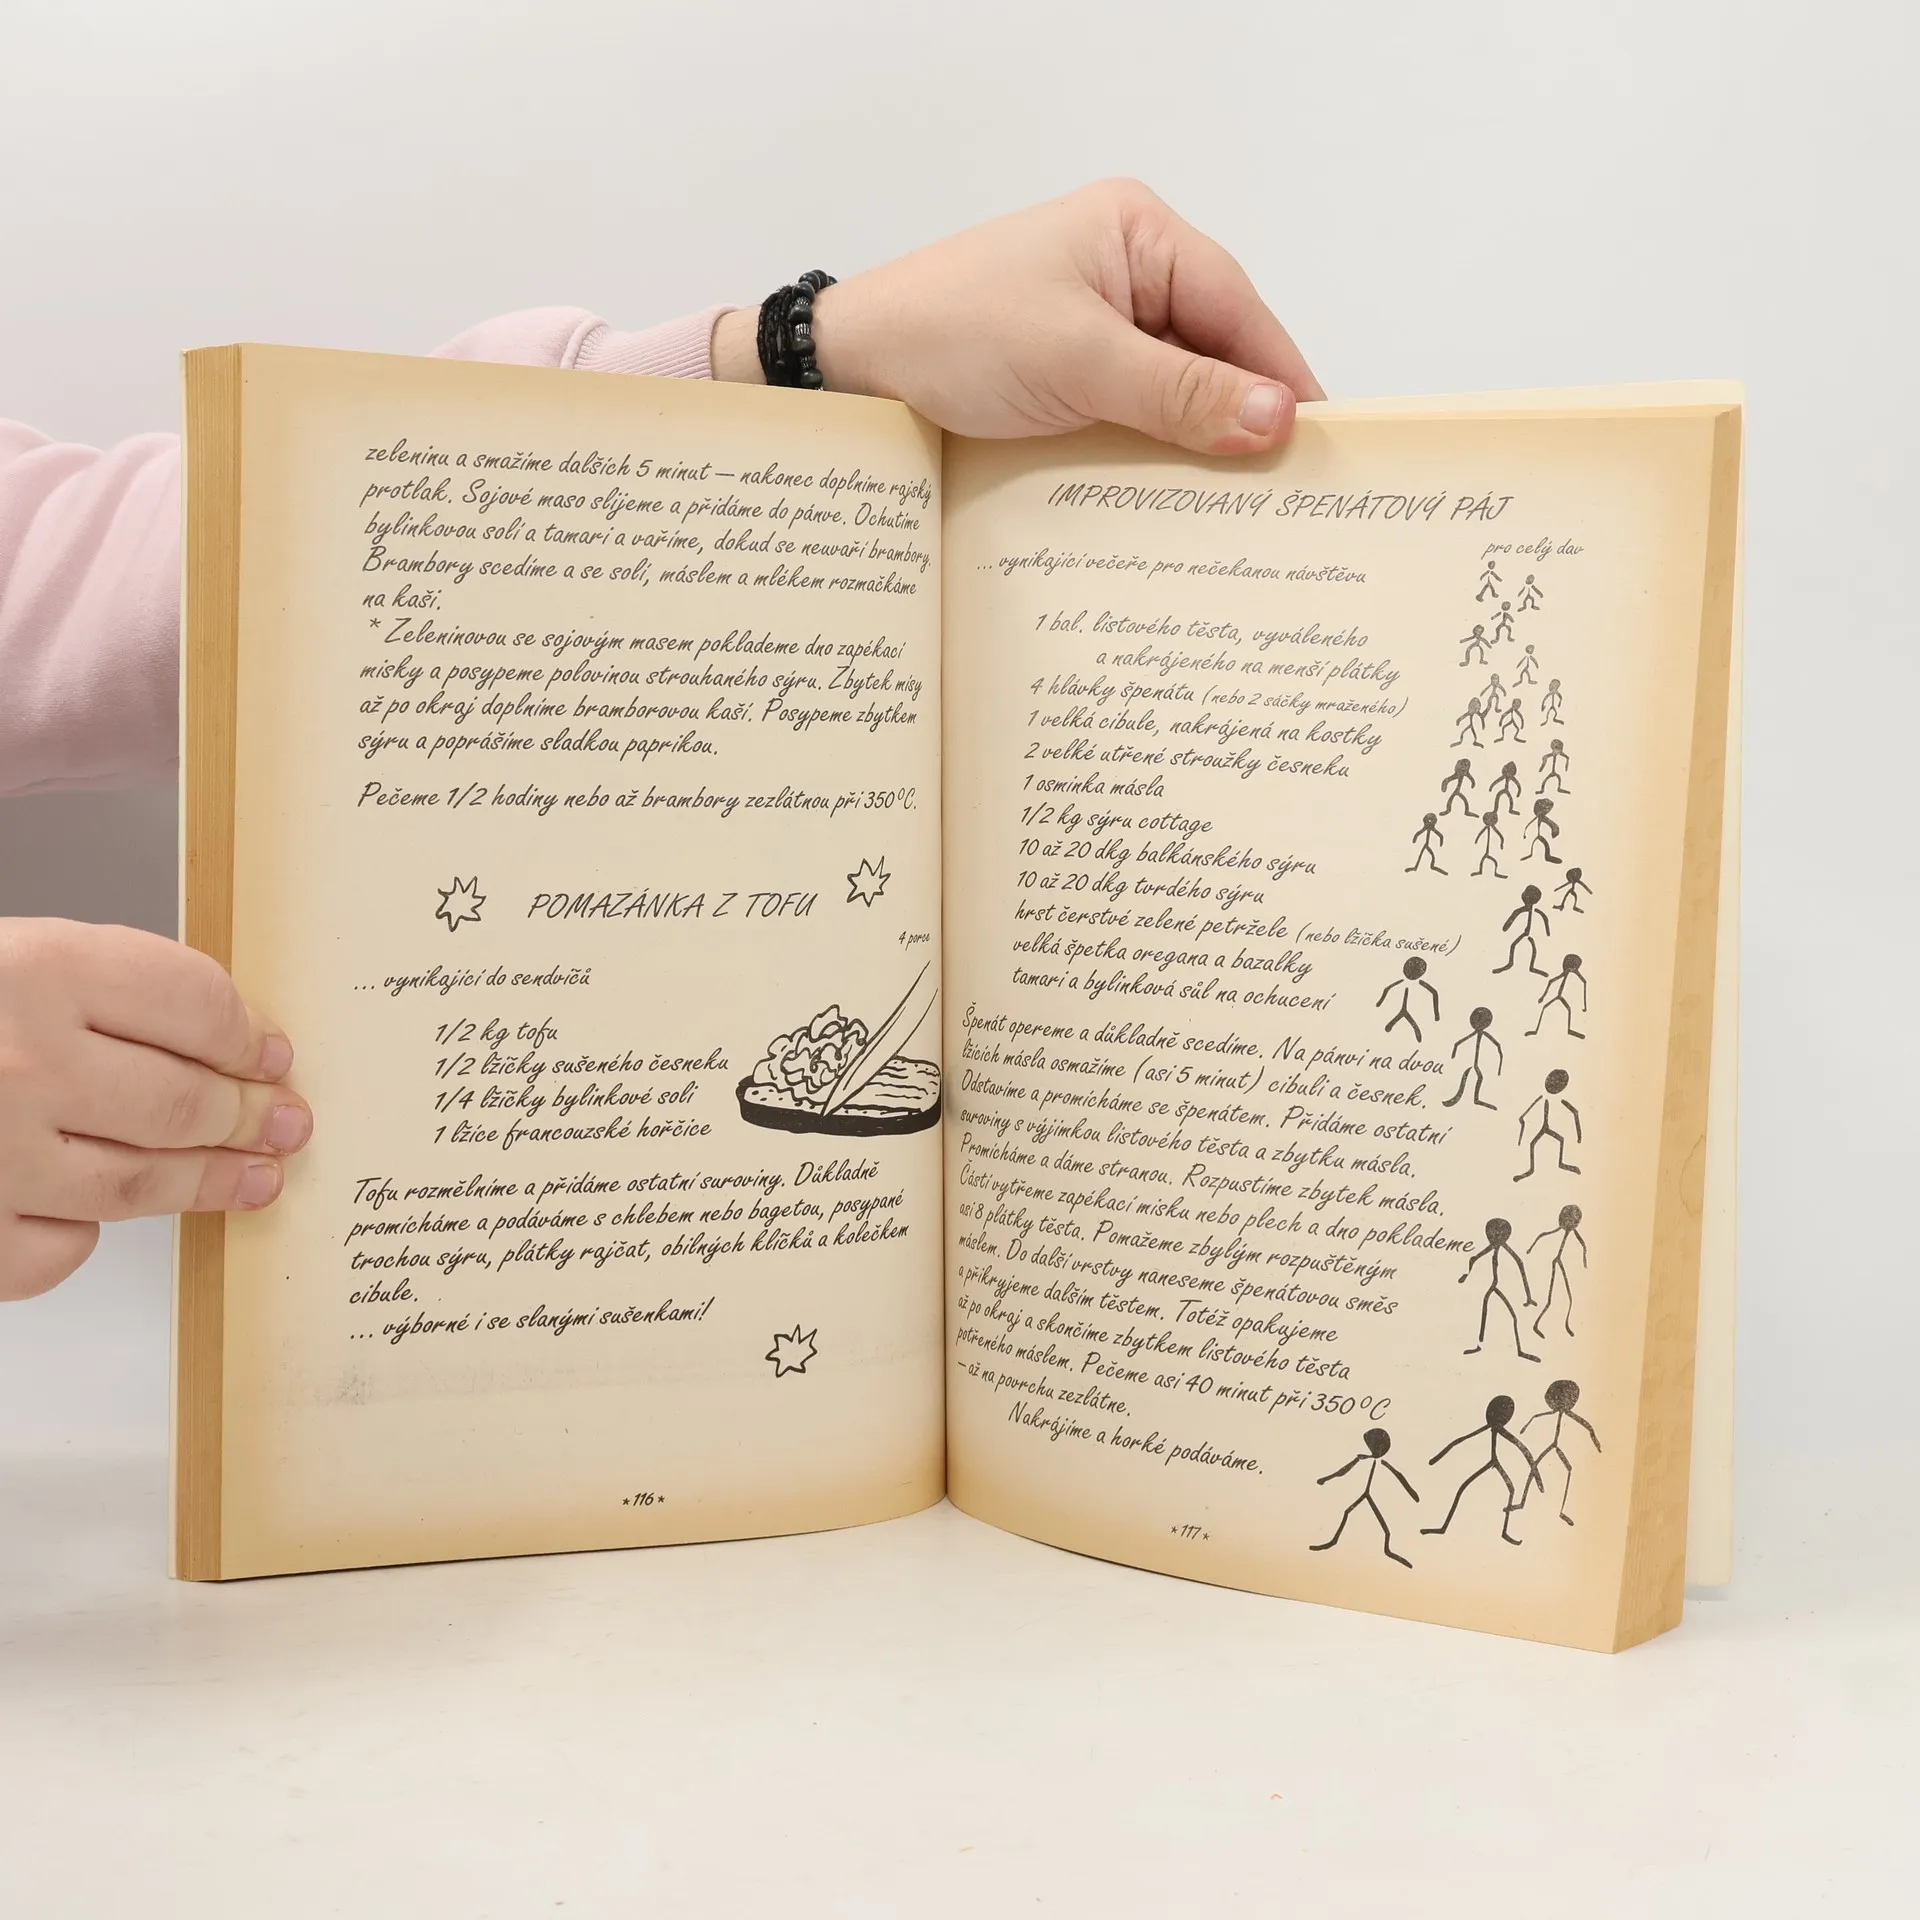 zeleninu a smažíme dalších 5 minut — nakonec doplníme rajský
protlak. Sojové maso slijeme a přidáme do pánve. Ochutíme
bylinkovou solí a tamari a vaříme, dokud se neuvaří brambory.
Brambory scedíme a se solí, máslem a mlékem rozmačkáme
na kaši.
* Zeleninovou se sojovým masem poklademe dno zapékací
misky a posypeme polovinou strouhaného sýru. Zbytek mísy
až po okraj doplníme bramborovou kaší. Posypeme zbytkem
sýru a poprášíme sladkou paprikou.
Pečeme 1/2 hodiny nebo až brambory zezlátnou při 350°C.
POMAZÁNKA Z TOFU
4 porce
... vynikající do sendvičů
1/2 kg tofu
1/2 lžičky sušeného česneku
1/4 lžičky bylinkové soli
1 lžíce francouzské hořčice
Tofu rozmělníme a přidáme ostatní suroviny. Důkladně
promícháme a podáváme s chlebem nebo bagetou, posypané
trochou sýru, plátky rajčat, obilných klíčků a kolečkem
cibule.
... výborné i se slanými sušenkami!
*116*
IMPROVIZOVANÝ ŠPENÁTOVÝ PÁJ
pro celý dav
... vynikající večeře pro nečekanou návštěvu
1 bal. listového těsta, vyváleného
a nakrájeného na menší plátky
4 hlávky špenátu (nebo 2 sáčky mraženého)
1 velká cibule, nakrájená na kostky
2 velké utřené stroužky česneku
1 osminka másla
1/2 kg sýru cottage
10 až 20 dkg balkánského sýru
10 až 20 dkg tvrdého sýru
hrst čerstvé zelené petržele (nebo lžička sušené)
velká špetka oregana a bazalky
tamari a bylinková sůl na ochucení
Špenát opereme a důkladně scedíme. Na pánvi na dvou
lžících másla osmažíme (asi 5 minut) cibuli a česnek.
Odstavíme a promícháme se špenátem. Přidáme ostatní
suroviny s výjimkou listového těsta a zbytku másla.
Promícháme a dáme stranou. Rozpustíme zbytek másla.
Částí vytřeme zapékací misku nebo plech a dno poklademe
asi 8 plátky těsta. Pomažeme zbylým rozpuštěným
máslem. Do další vrstvy naneseme špenátovou směs
a přikryjeme dalším těstem. Totéž opakujeme
až po okraj a skončíme zbytkem listového těsta
potřeného máslem. Pečeme asi 40 minut při 350°C
— až na povrchu zezlátne.
Nakrájíme a horké podáváme.
*117*